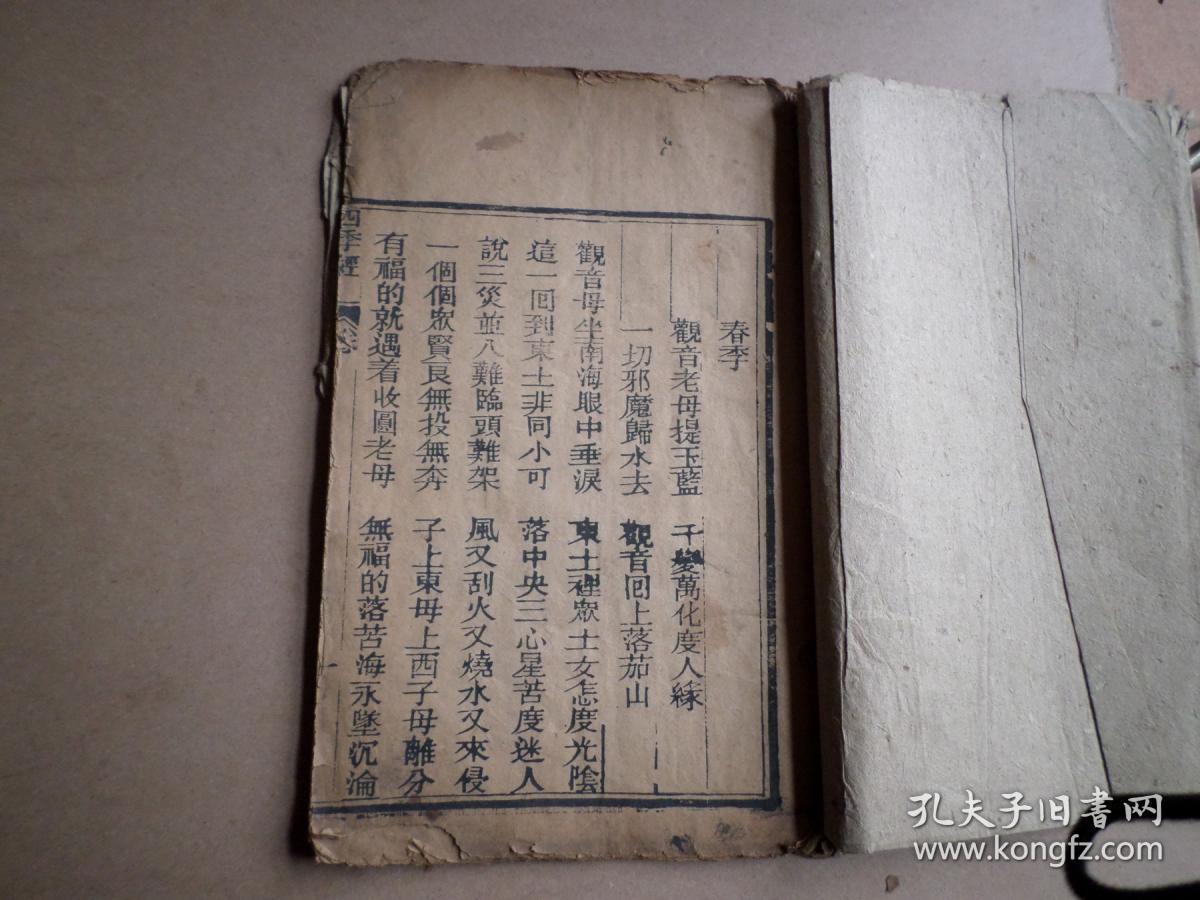 春季
觀音老母提玉藍 千變萬化度人緣
一切邪魔歸水去 觀音回上落茄山
觀音母坐南海眼中垂淚 東土裡眾士女怎度光陰
這一回到東土非同小可 落中央三心星苦度迷人
說三災並八難臨頭難架 風又刮火又燒水又來侵
一個個眾賢良無投無奔 子上東母上西子母離分
有福的就遇着收圓老母 無福的落苦海永墜沉淪
四季經
孔夫子旧书网
www.kongfz.com